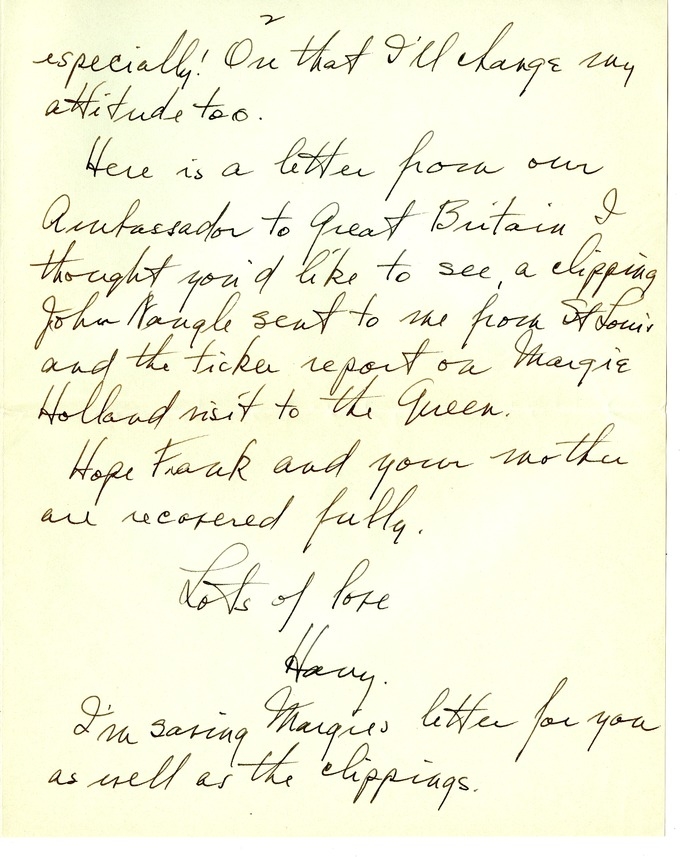 2
especially! On that I'll change my
attitude too.
Here is a letter from our
Ambassador to Great Britain I
thought you'd like to see, a clipping
John Nangle sent to me from St Louis
and the ticker report on Margie
Holland visit to the Queen.
Hope Frank and your mother
are recovered fully.
Lots of love
Harry.
I'm saving Margies letter for you
as well as the clippings.